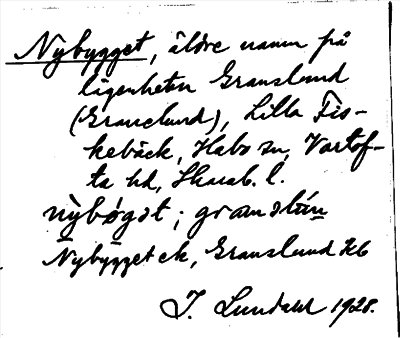 Nybygget, äldre namn på
lägenheten Granslund
(Granelund), Lilla Fis-
kebäck, Habo sn, Vartof-
ta hd, Skarab. l.
nỳbøgst; granslún
Nybygget ek, Granslund Hb
J. Lundahl 1928.